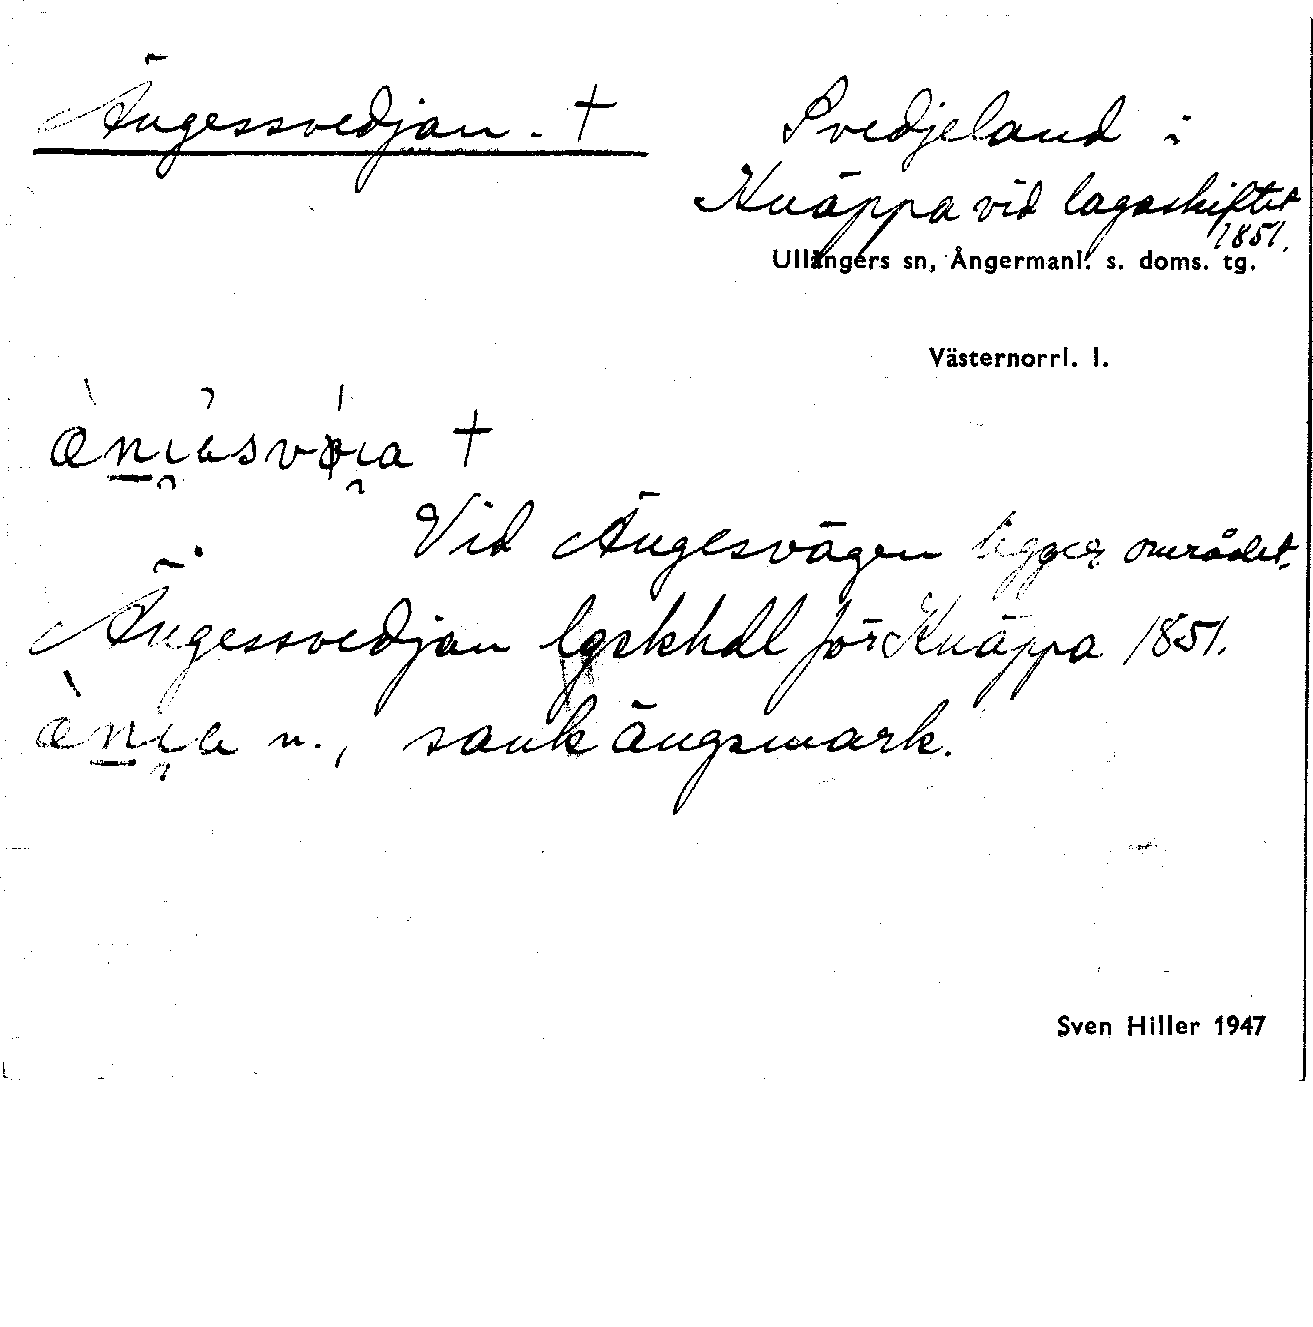 Ängessvedjan. †
Svedjeland i
Knäppa vid lagaskiftet
1851.
Ullångers sn, Ångermanl. s. doms. tg.
Västernorrl. l.
†
Vid Ängesvägen ligger området.
Ängessvedjan lgskhdl för Knäppa 1851.
n., sank ängsmark.
Sven Hiller 1947